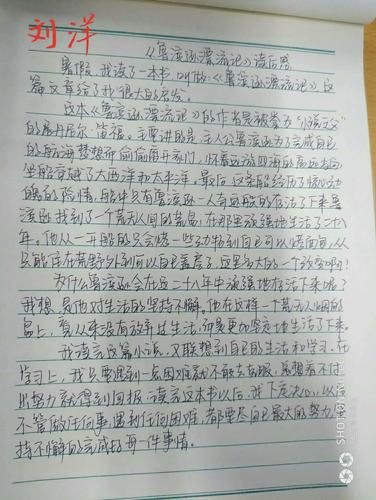 刘洋
《鲁滨逊漂流记》读后感
暑假,我读了一本书,叫做《鲁滨逊漂流记》,这
篇文章给了我很大的启发。
这本《鲁滨逊漂流记》的作者是被誉为"小说之父"
的丹尼尔·笛福。主要讲的是,主人公鲁滨逊为了完成自己
的航海梦想而偷偷离开家门,怀着远游四海的高远志向,
坐船穿越了大西洋和太平洋。最后,这条船经历了惊心动
魄的险情,船中只有鲁滨逊一人存活了下来鲁
滨逊找到了一个荒无人烟的荒岛,在那里顽强地生活了二十八
年。他从一开始的只会烧一些到自己可以烤面包,从
只能住在荒野外到可以自己盖房子,这是多大的一个改变啊!
为什么鲁滨逊会在这二十八年中顽强地存活下来呢?
我想,是他对生活的坚持不懈。他在这样一个荒无人烟的
岛上,看从来没有放弃过生活,而是更加坚定地生活了下来。
我读完这篇小说,又联想到自己的生活和学习。在
学习上,我只要遇到一点困难就不敢去克服,总想着不付
出努力就得到回报。读完这本书以后,我下定决心,以后
不管做任何事,遇到任何困难,都要尽自己最大的努力,坚
持不懈的完成好每一件事情。
SHOT ON